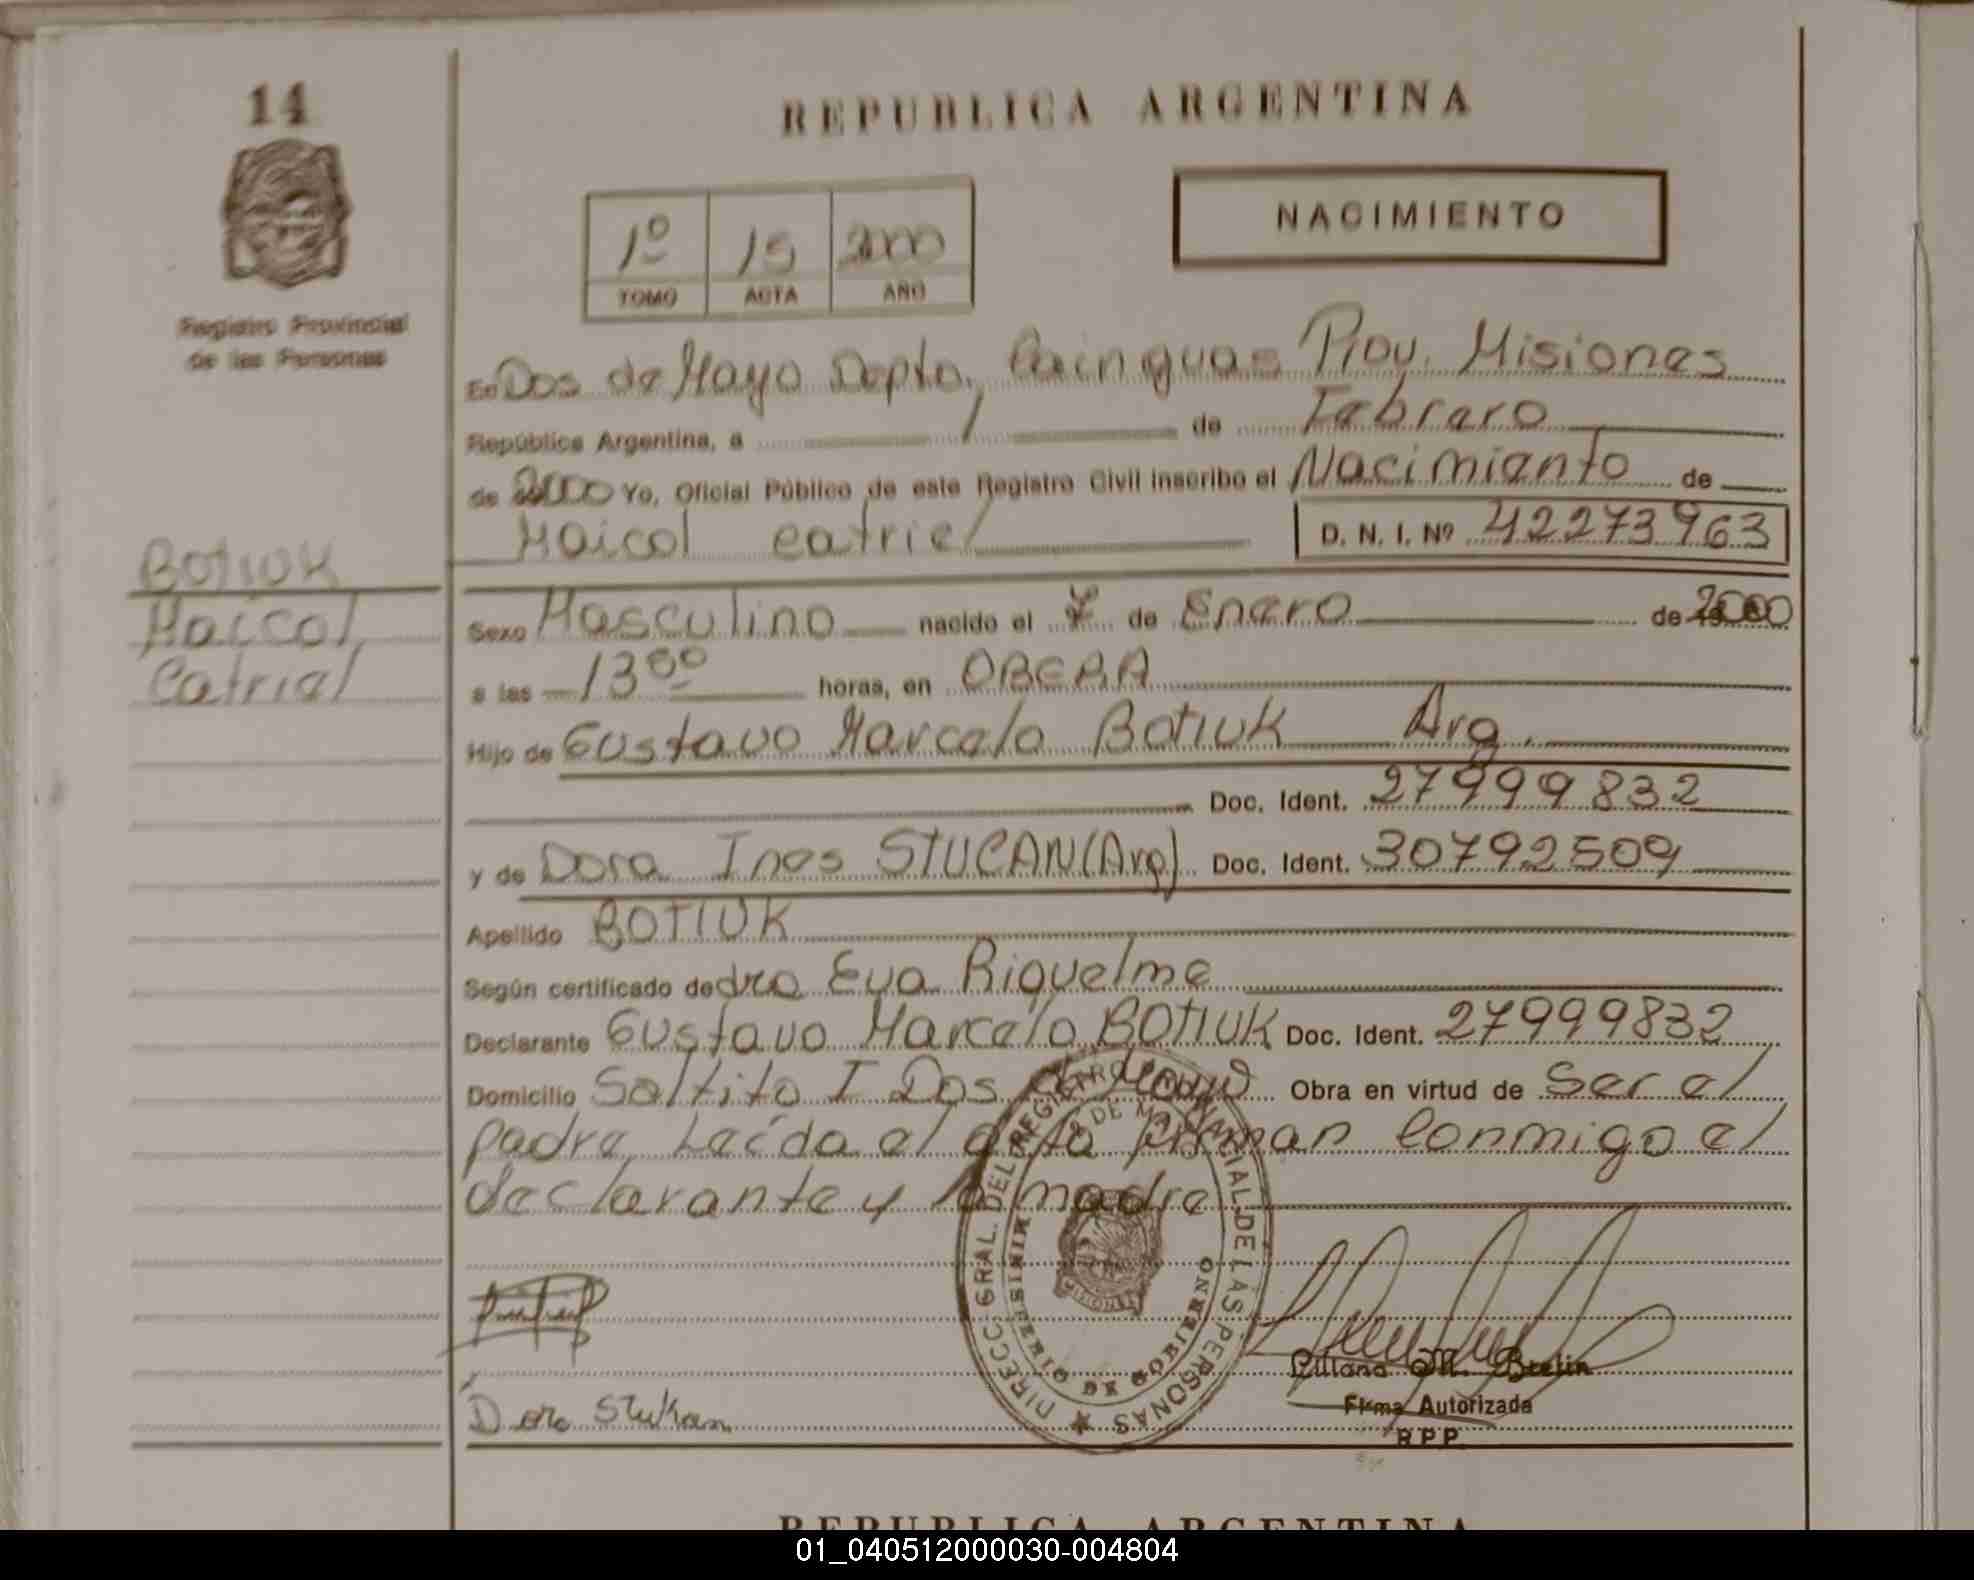 14
REPUBLICA ARGENTINA
1º 15 2000
TOMO ACTA AÑO
NACIMIENTO
Registro Provincial
de las Personas
En Dos de Mayo Depto, Cainguas Prov. Misiones
República Argentina, a 1 de Febrero
de 2000 Yo, Oficial Público de este Registro Civil inscribo el Nacimiento de
Maicol Catriel D. N. I. Nº 42273963
Botiuk
Maicol
Catriel
Sexo Masculino nacido el 7 de Enero de 2000
a las 13⁰⁰ horas, en OBERA
Hijo de Gustavo Marcelo Botiuk Arg.
Doc. Ident. 27999832
y de Dora Ines STUCAN (Arg) Doc. Ident. 30792509
Apellido BOTIUK
Según certificado de dra Eva Riquelme
Declarante Gustavo Marcelo BOTIUK Doc. Ident. 27999832
Domicilio Saltito I Dos de Mayo Obra en virtud de Ser el
padre. Leída el acta firman Conmigo el
declarante y la madre
DIRECC. GRAL. DEL REGISTRO PROVINCIAL DE LAS PERSONAS
2 DE MAYO
MINISTERIO DE GOBIERNO
MISIONES
Dora Stukan
Liliana M. Brelin
Firma Autorizada
R.P.P.
REPUBLICA ARGENTINA
01_040512000030-004804